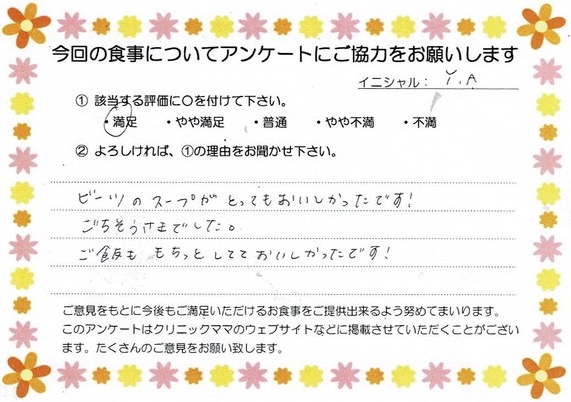 今回の食事についてアンケートにご協力をお願いします
イニシャル： Y.A
① 該当する評価に〇を付けて下さい。
・満足 ・やや満足 ・普通 ・やや不満 ・不満
② よろしければ、①の理由をお聞かせ下さい。
ビーツのスープがとってもおいしかったです!
ごちそうさまでした。
ご飯も もちっとしてて おいしかったです!
ご意見をもとに今後もご満足いただけるお食事をご提供出来るよう努めてまいります。
このアンケートはクリニックママのウェブサイトなどに掲載させていただくことがござい
ます。たくさんのご意見をお願い致します。